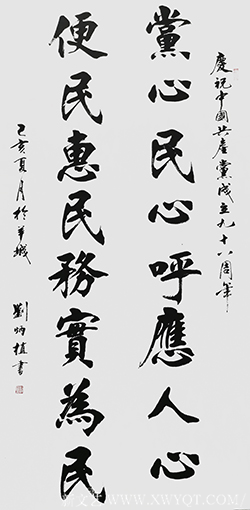 慶祝中國共產黨成立九十八周年
黨心民心呼應人心
便民惠民務實為民
己亥夏月於羊城
劉炳植書
WWW.XWYQT.COM